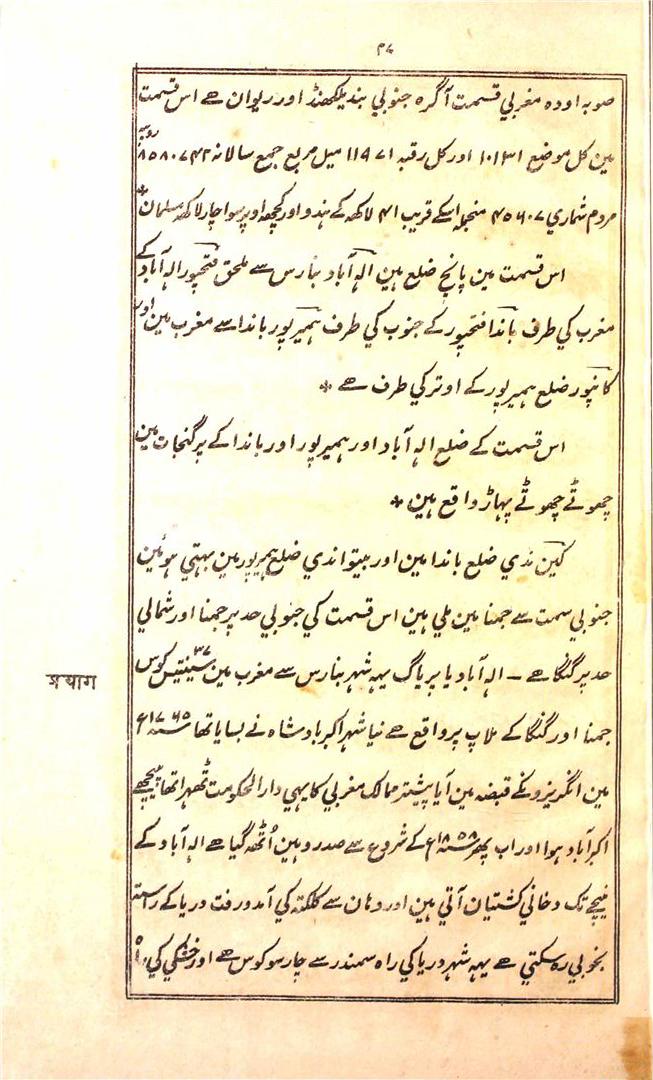 ۳۸
صوبہ اودہ مغربي قسمت آگرہ جنوبي بندیلکھنڈ اور ریوان ہے اس قسمت
مین کل موضع ۱۰۱۳۱ اور کل رقبہ ۱۱۹۷۱ میل مربع جمع سالانہ ۸۵۸۰۷۴۲ روپیہ
مردم شماري ۴۵۶۰۷ منجملہ اسکے قریب ۴۱ لاکھہ کے ہندو اور کچھہ اوپر سوا چار لاکھہ مسلمان *
اس قسمت مین پانچ ضلع ہین الہ آباد بنارس سے ملحق فتحپور الہ آباد کے
مغرب کي طرف باندا فتحپور کے جنوب کي طرف ہمیرپور باندا سے مغرب مین اور
کانپور ضلع ہمیرپور کے اوتر کي طرف ہے *
اس قسمت کے ضلع الہ آباد اور ہمیرپور اور باندا کے پرگنجات مین
چھوٹے چھوٹے پہاڑ واقع ہین *
کین ندي ضلع باندا مین اور بیتوا ندي ضلع ہمیرپور مین بہتي ہوئین
جنوبي سمت سے جمنا مین ملي ہین اس قسمت کي جنوبي حد پر جمنا اور شمالي
حد پر گنگا ہے — الہ آباد یا پریاگ یہہ شہر بنارس سے مغرب مین ۳۷ سینتیس کوس
प्रयाग
جمنا اور گنگا کے ملاپ پر واقع ہے نیا شہر اکبر بادشاہ نے بسایا تھا سنہ ۱۷۶۵ ع
مین انگریزونکے قبضہ مین آیا پیشتر ممالک مغربي کا یہي دار الحکومت ٹھہرا تھا پیچھے
اکبرآباد ہوا اور اب پھر سنہ ۱۸۵۸ ع کے شروع سے صدر وہین اُٹھہ گیا ہے الہ آباد کے
نیچے تک دخاني کشتیان آتي ہین اور وہان سے کلکتہ کي آمد و رفت دریا کے راستہ
بخوبي رہ سکتي ہے یہہ شہر دریا کي راہ سمندر سے چار سو کوس ہے اور خشکي کي راہ